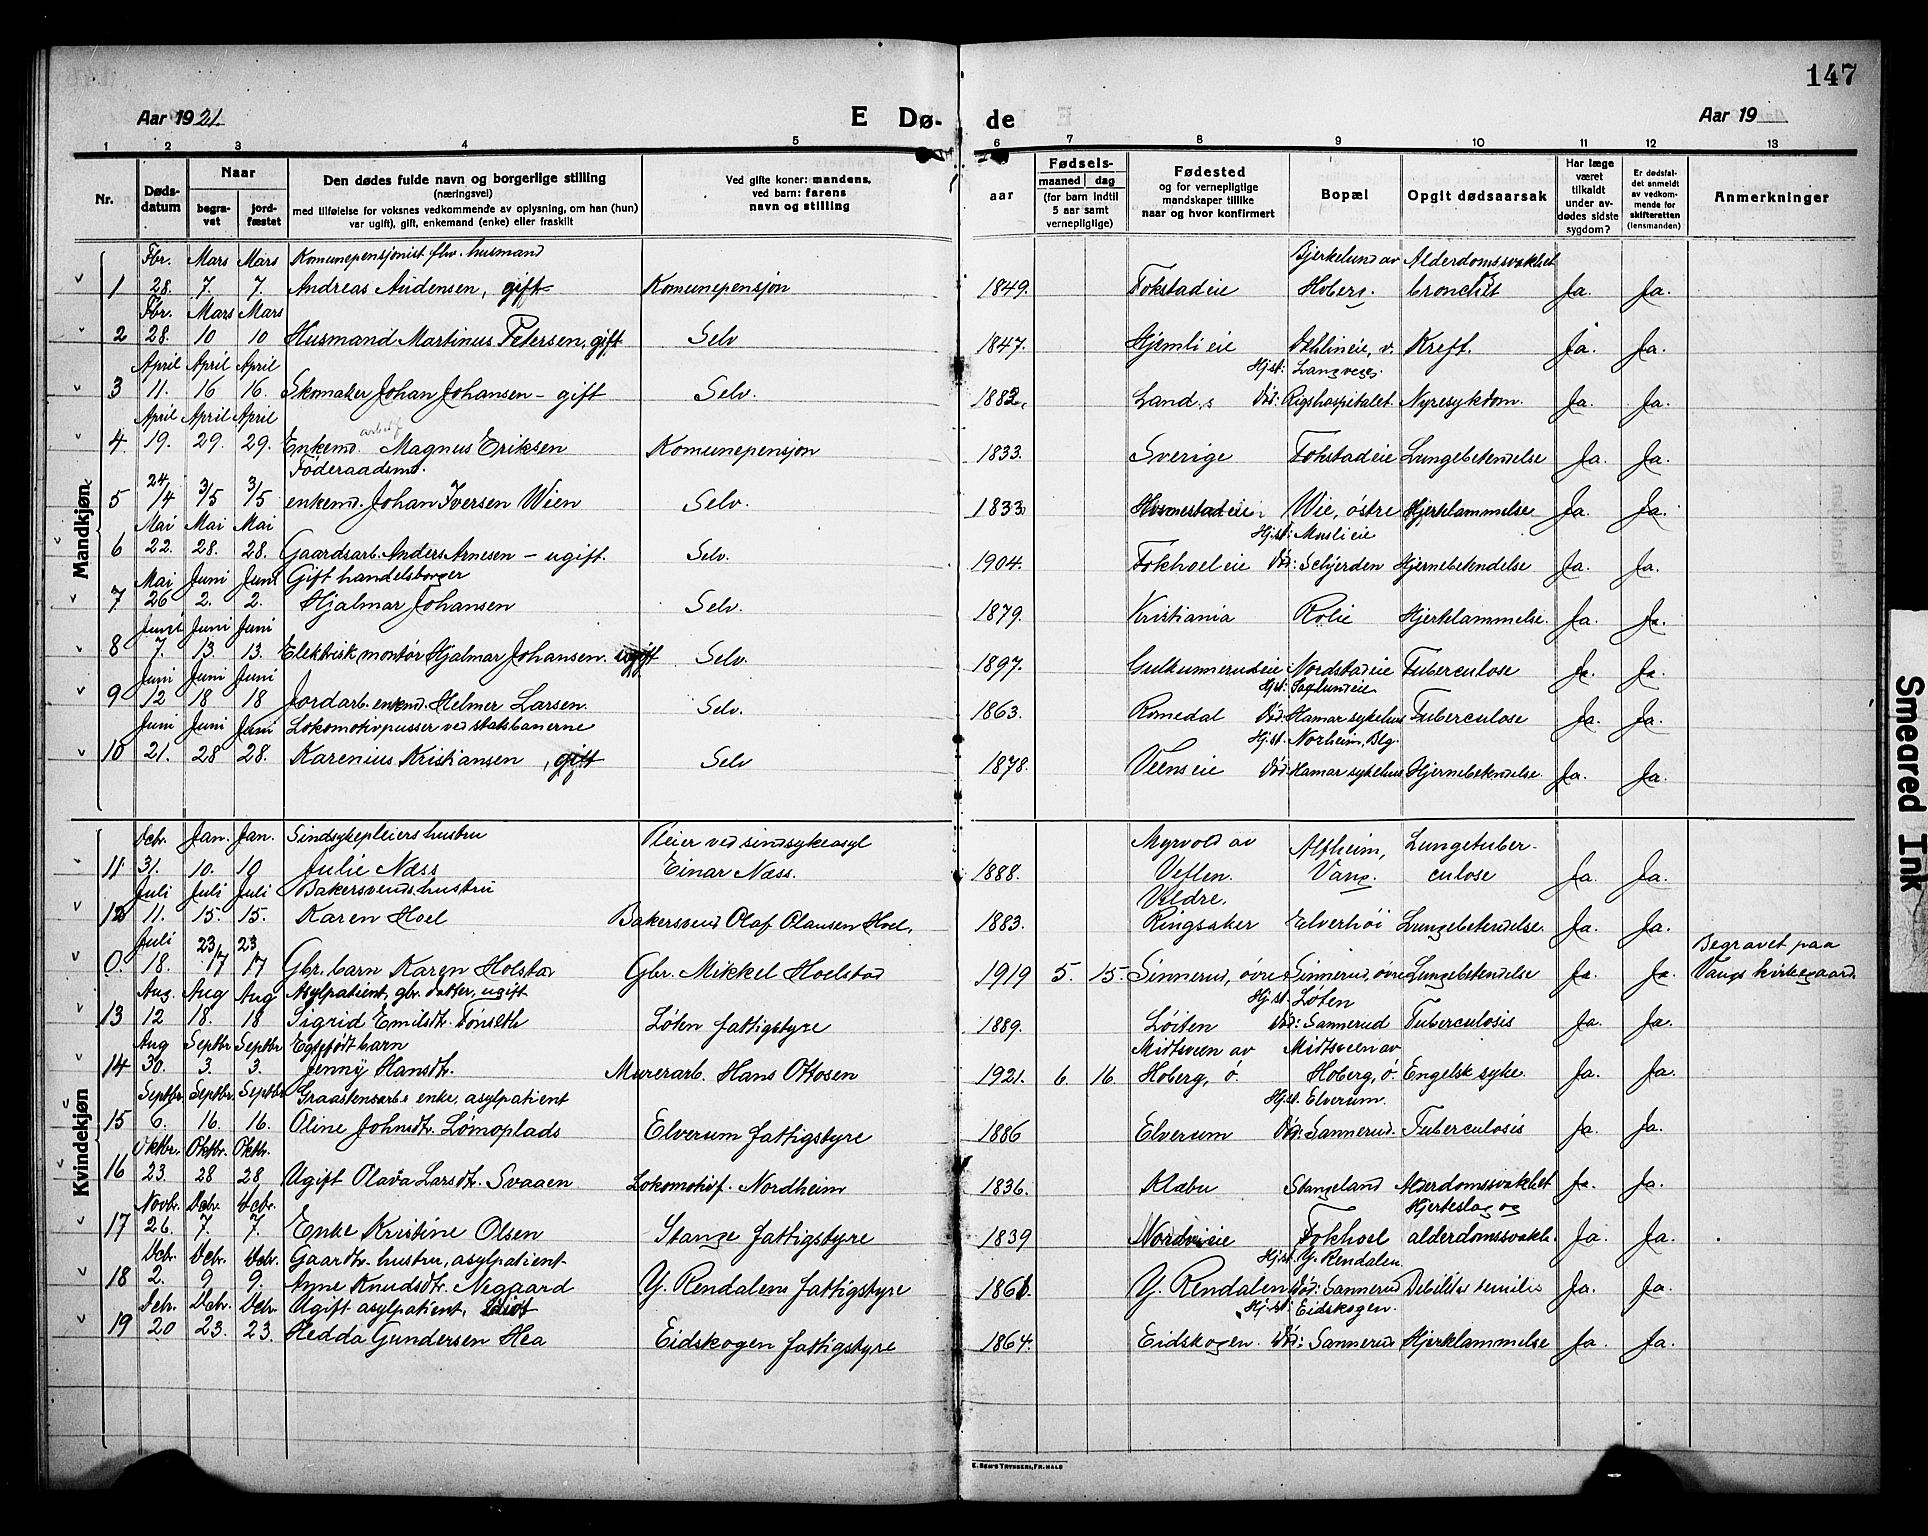 147
Aar 1921.
E Dø- de
Aar 19
1 2 3 4 5 6 7 8 9 10 11 12 13
Nr.
Døds-datum
Naar
begra-vet
jord-fæstet
Den dødes fulde navn og borgerlige stilling
(næringsvei)
med tilføielse for voksnes vedkommende av oplysning, om han (hun)
var ugift, gift, enkemand (enke) eller fraskilt
Ved gifte koner: mandens,
ved barn: farens
navn og stilling
aar
Fødsels-
maaned dag
(for barn indtil
5 aar samt
vernepligtige)
Fødested
og for vernepligtige
mandskaper tillike
naar og hvor konfirmert
Bopæl
Opgit dødsaarsak
Har læge
været
tilkaldt
under av-
dødes sidste
sygdom?
Er dødsfal-
det anmeldt
av vedkom-
mende for
skifteretten
(lensmanden)
Anmerkninger
Mandkjøn
Fbr. Mars Mars Komunepensjonist fhv. husmand Bjerkelund av Alderdomssvakhet
1 28. 7. 7. Andreas Audensen, gift Komunepensjon 1849. Fokstadeie Hoberg. og bronchit Ja. Ja.
Fbr. Mars Mars
2 28. 10 10 Husmand Martinus Petersen, gift Selv 1847. Hjemli eie Dæhlineie, v. Kreft. Ja. Ja.
April April April Hj.st: Langvege.
3 11. 16 16. Skomaker Johan Johansen - gift Selv. 1882, Land, s Død: Rigshospitalet. Nyresykdom. Ja. Ja.
April April April
4 19. 29. 29. Enkemd. arbeid. Magnus Eriksen Komunepensjon 1833. Sverige Fokstadeie Lungebetendelse Ja. Ja.
Føderaadsmd.
5 24/4 3/5 3/5 enkemd. Johan Iversen Wien Selv. 1833 Hvsmestadeie Wie, østre Hjertelammelse Ja. Ja.
Mai Mai Mai Hj.st: Muslieie
6 22. 28. 28. Gaardsarb. Anders Arnesen - ugift. Selv. 1904. Fokhoel eie Død: Schjerden Hjernebetendelse Ja. Ja.
Mai Juni Juni Gift handelsborger
7 26 2. 2. Hjalmar Johansen Selv. 1879. Kristiania Rolie Hjertelammelse. Ja. Ja.
Juni Juni Juni
8 7. 13. 13. Elektrisk montør Hjalmar Johansen. ugift Selv. 1897. Gulkunnerudeie Nordstadeie Tuberculose Ja. Ja.
Juni Juni Juni Hj.st: Saglundeie
9 12 18 18 Jordarb. enkemd. Helmer Larsen. Selv. 1863. Romedal Død: Hamar sykehus Tuberculose Ja. Ja.
Juni Juni Juni Lokomotivpusser ved statsbanerne Hj.st. Norheim, Blg.
10 21. 28 28. Karenius Kristiansen, gift Selv 1878. Veenseie Død: Hamar sykehus Hjernebetendelse. Ja. Ja.
Kvindekjøn
Dcbr. Jan. Jan. Sindsykepleiers hustru Pleier ved sindsykeasyl Myrvold av Alfheim, Lungetuber-
11. 31. 10. 10 Julie Næss Einar Næss. 1888. Vetlen. Vang. culose Ja. Ja.
Juli Juli Juli Bakersvends hustru Veldre,
12 11. 15. 15. Karen Hoel Bakersvend Olaf Olausen Hoel. 1883. Ringsaker Elverhøi Lungebetendelse. Ja. Ja.
Juli 23 23 Begravet paa
0. 18. 17 17 Gbr. barn Karen Holstad Gbr. Mikkel Hoelstad 1919 5. 15 Sinnerud, øvre Sinnerud, øvre Lungebetendelse Ja. Ja. Vangs kirkegaard.
Aug. Aug Aug Asylpatient, gbr. datter, ugift Hj.st. Løten
13 12 18. 18 Sigrid Emilsdtr. Tønseth Løten fattigstyre 1889. Løiten Død: Sannerud Tuberculosis Ja. Ja.
Aug Septbr Septbr Egtefødt barn Midtsveen av Midtsveen av
14 30. 3. 3. Jenny Hansdtr. Murerarb. Hans Ottosen 1921. 6. 16. Hoberg, ø. Hoberg, ø. Engelsk syke. Ja. Ja.
Septbr. Septbr. Septbr. Graastensarb.s enke, asylpatient Hj.st. Elverum.
15 6. 16. 16. Oline Johnsdtr. Lømoplads Elverum fattigstyre 1886 Elverum Død: Sannerud. Tuberculosis Ja. Ja.
Oktbr. Oktbr. Oktbr.
16 23. 28 28. Ugift Olava Larsdtr. Svaaen Lokomotivf. Nordheim 1836. Klæbu Stangeland Alderdomssvakhet Ja. Ja.
Novbr. Dcbr. Dcbr. Hjerteslag og
17 26. 7. 7. Enke Kristine Olsen Stange fattigstyre 1839 Nordvieie Fokhoel alderdomssvakh. Ja. Ja.
Dcbr. Dcbr. Dcbr. Gaardbr. hustru, asylpatient Hj.st. Y. Rendalen
18 2. 9 9. Anne Knudsdtr. Negaard Y. Rendalens fattigstyre 1861 Y. Rendalen Død: Sannerud Debilitas senilis Ja. Ja.
Dcbr. Dcbr. Dcbr. Ugift asylpatient, idiot Hj.st. Eidskogen.
19 20 23. 23. Hedda Gundersen Hea Eidskogen fattigstyre 1864. Eidskogen. Død: Sannerud Hjertelammelse Ja. Ja.
E. Sem's Trykkeri, Fr.hald
Smeared Ink